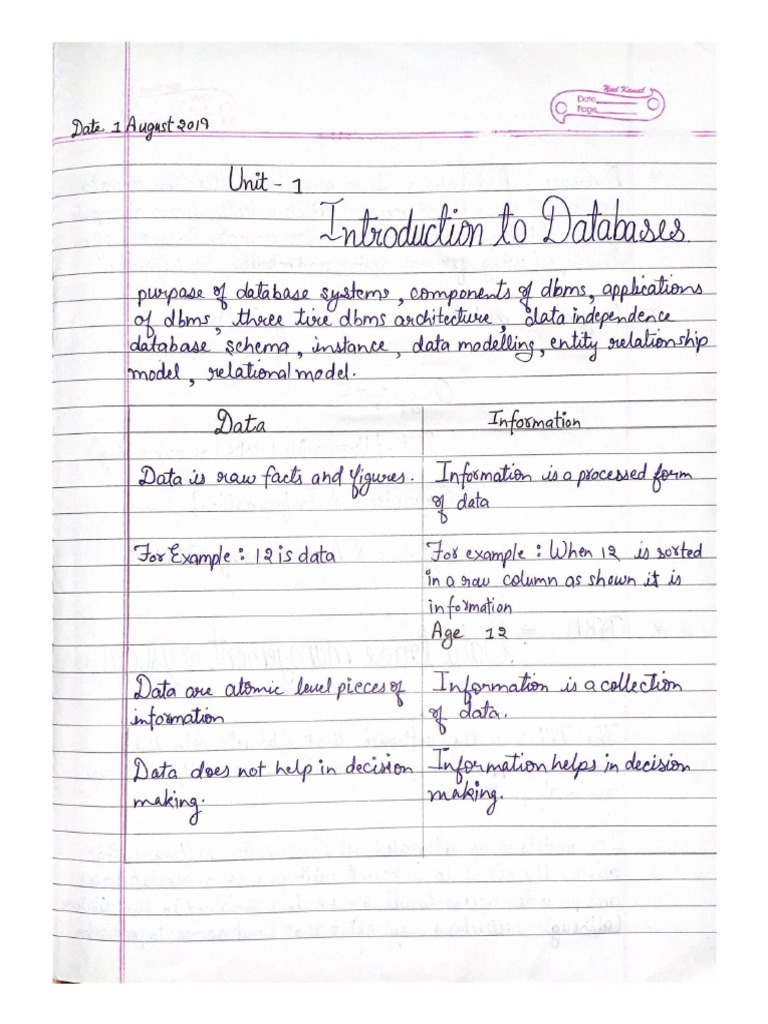 Neel Kamal
Date
Page
Date 1 August 2019
Unit - 1
Introduction to Databases.
purpase of database systems, components of dbms, applications
of dbms, three tire dbms architecture, data independence
database schema, instance, data modelling, entity relationship
model, relational model.
Data
Information
Data is raw facts and figures.
Information is a processed form
of data
For Example : 12 is data
For example : When 12 is sorted
in a raw column as shown it is
information
Age 12
Data are atomic level pieces of
information
Information is a collection
of data.
Data does not help in decision
making.
Information helps in decision
making.